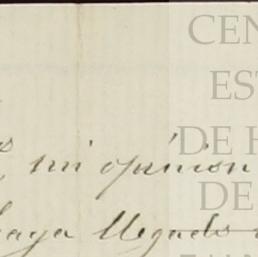 CEN
EST
DE H
DE
mi opinion
haya llegado